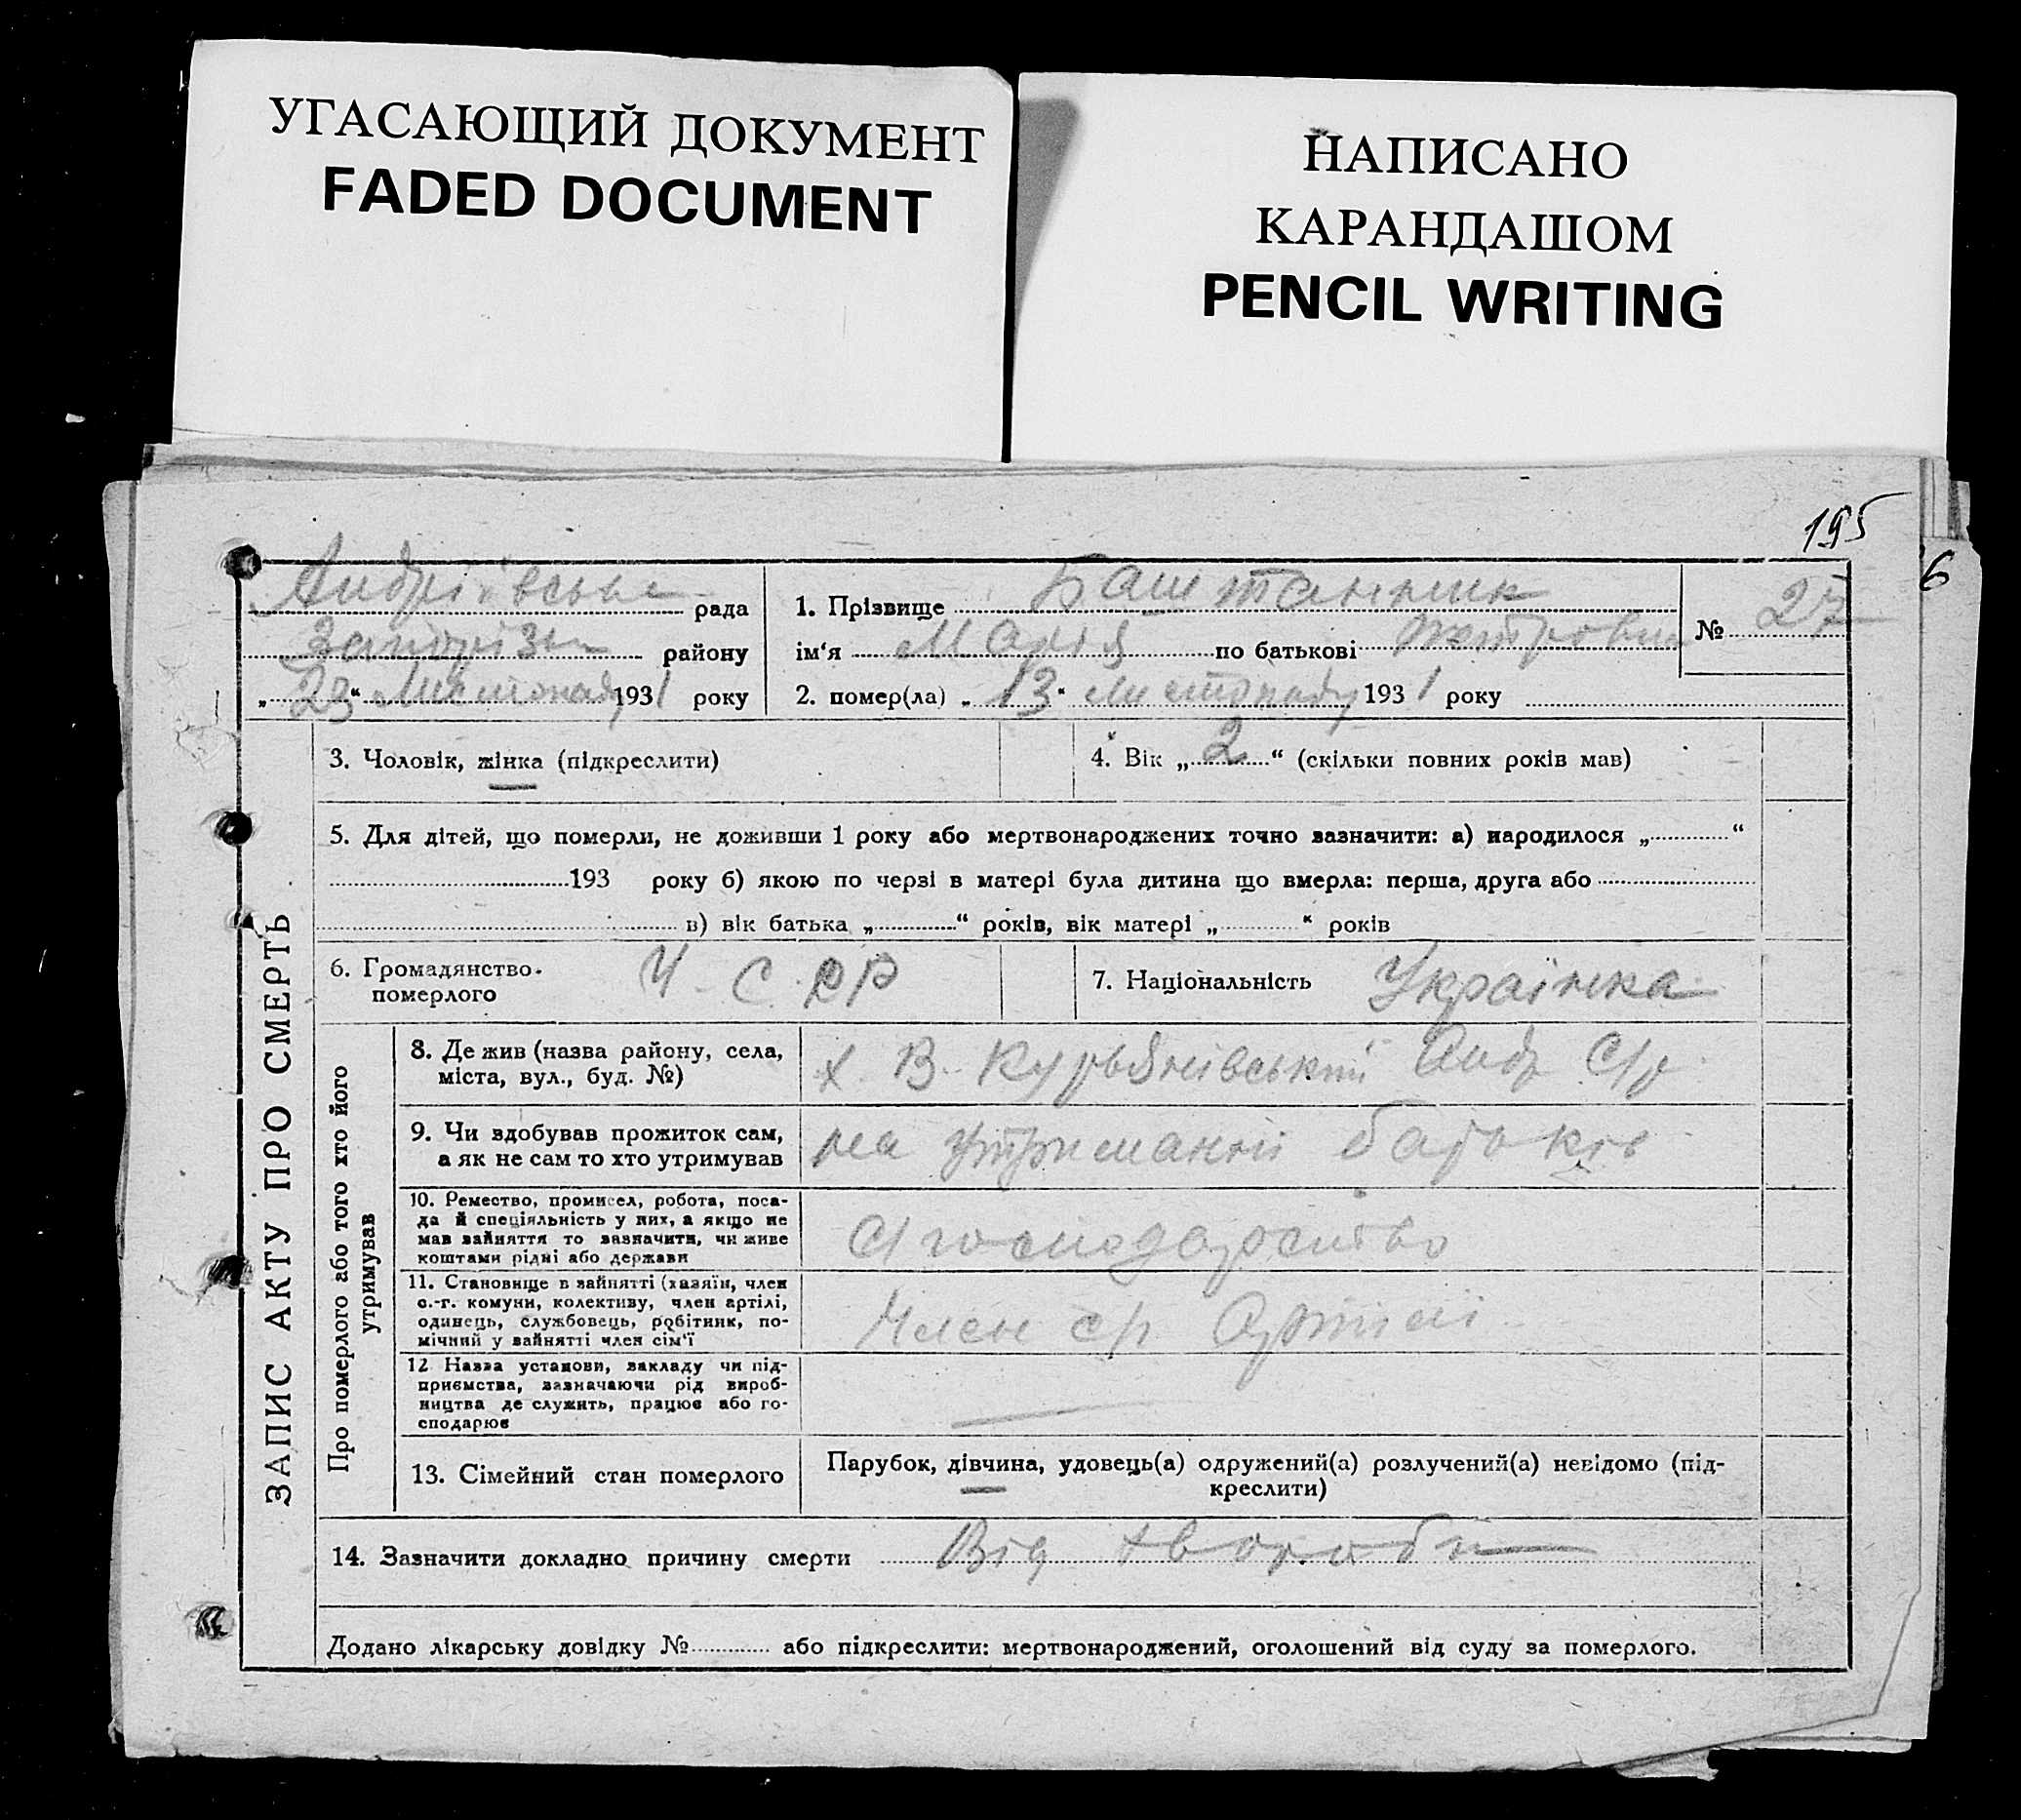 УГАСАЮЩИЙ ДОКУМЕНТ
FADED DOCUMENT
НАПИСАНО
КАРАНДАШОМ
PENCIL WRITING
195
6
Андріївська рада
Запоріз районy
„23“ Листопаду 1931 року
1. Прізвище Баштанник
ім‘я Марія по батькові Петровна
№ 27
2. помер(ла) „13“ Листопаду 1931 року
ЗАПИС АКТУ ПРО СМЕРТЬ
3. Чоловік, жінка (підкреслити)
4. Вік „2“ (скільки повних років мав)
5. Для дітей, що померли, не доживши 1 року або мертвонароджених точно зазначити: а) народилося „............“
193 року б) якою по черзі в матері була дитина що вмерла: перша, друга або
в) вік батька „............“ років, вік матері „............“ років
6. Громадянство
померлого
У. С. Р Р
7. Національність Українка
Про померлого або того хто його
утримував
8. Де жив (назва району, села,
міста, вул., буд. №)
х. В. Курьянівський Андр С/р
9. Чи здобував прожиток сам,
а як не сам то хто утримував
на утриманні батьків
10. Ремество, промисел, робота, поса-
да й спеціяльність у них, а якщо не
мав зайняття то зазначити, чи живе
коштами рідні або держави
С/господарство
11. Становище в зайнятті (хазяїн, член
с.-г. комуни, колективу, член артілі,
одинець, службовець, робітник, по-
мічний у зайнятті член сім‘ї
Член с/г Артілі
12 Назва установи, закладу чи під-
приємства, зазначаючи рід вироб-
ництва де служить, працює або го-
сподарює
13. Сімейний стан померлого
Парубок, дівчина, удовець(а) одружений(а) розлучений(а) невідомо (під-
креслити)
14. Зазначити докладно причину смерти Від хвороби
Додано лікарську довідку №............ або підкреслити: мертвонароджений, оголошений від суду за померлого.